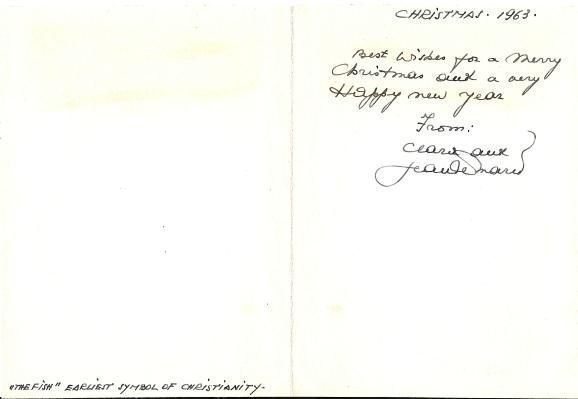 CHRISTMAS. 1963.
Best Wishes for a Merry
Christmas and a very
Happy new year
From:
and
"THE FISH" EARLIEST SYMBOL OF CHRISTIANITY.